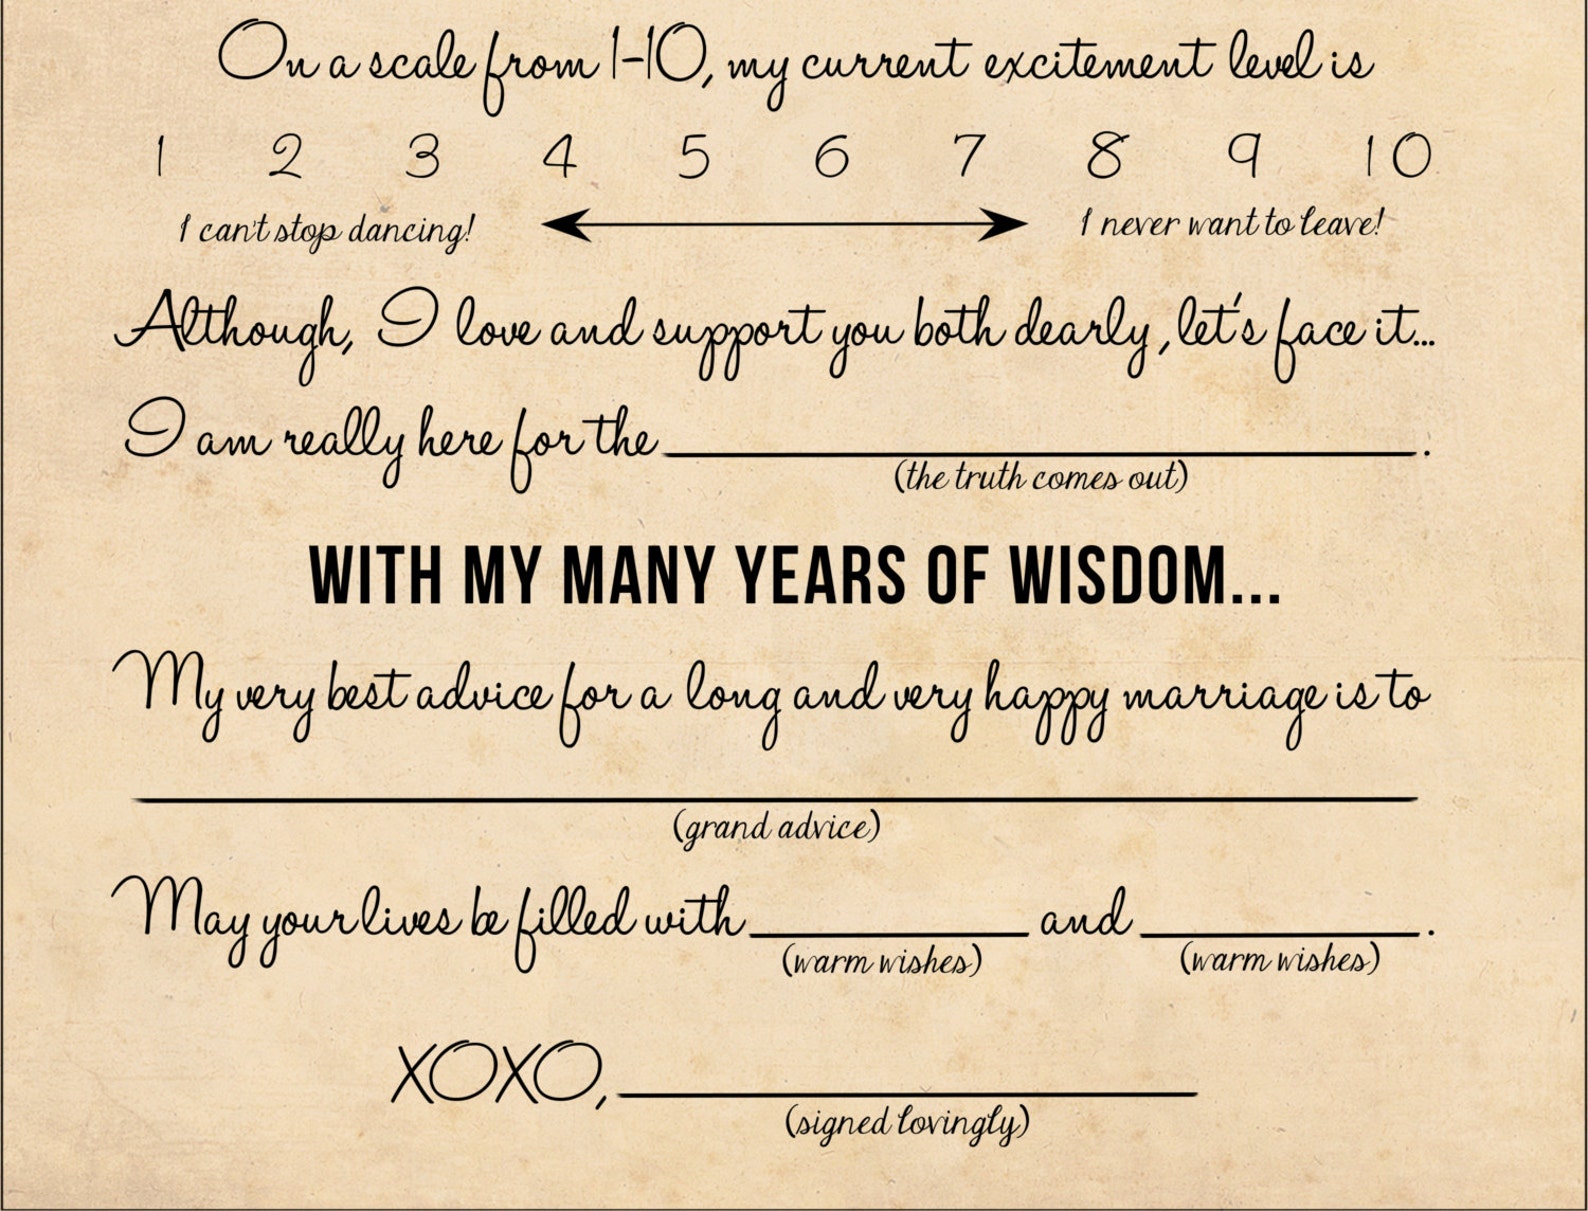 On a scale from 1-10, my current excitement level is
1 2 3 4 5 6 7 8 9 10
I can't stop dancing! I never want to leave!
Although, I love and support you both dearly, let's face it...
I am really here for the ____________________.
(the truth comes out)
WITH MY MANY YEARS OF WISDOM...
My very best advice for a long and very happy marriage is to
____________________
(grand advice)
May your lives be filled with __________ and __________.
(warm wishes) (warm wishes)
XOXO, ____________________
(signed lovingly)